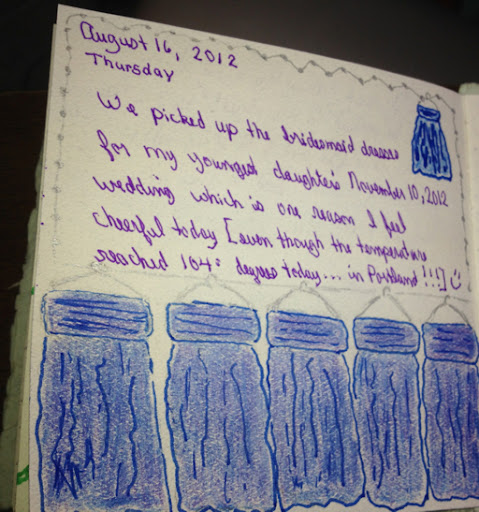 August 16, 2012
Thursday
We picked up the bridesmaid dresses
for my youngest daughter's November 10, 2012
wedding which is one reason I feel
cheerful today [even though the temperature
reached 104° degrees today... in Portland!!!]